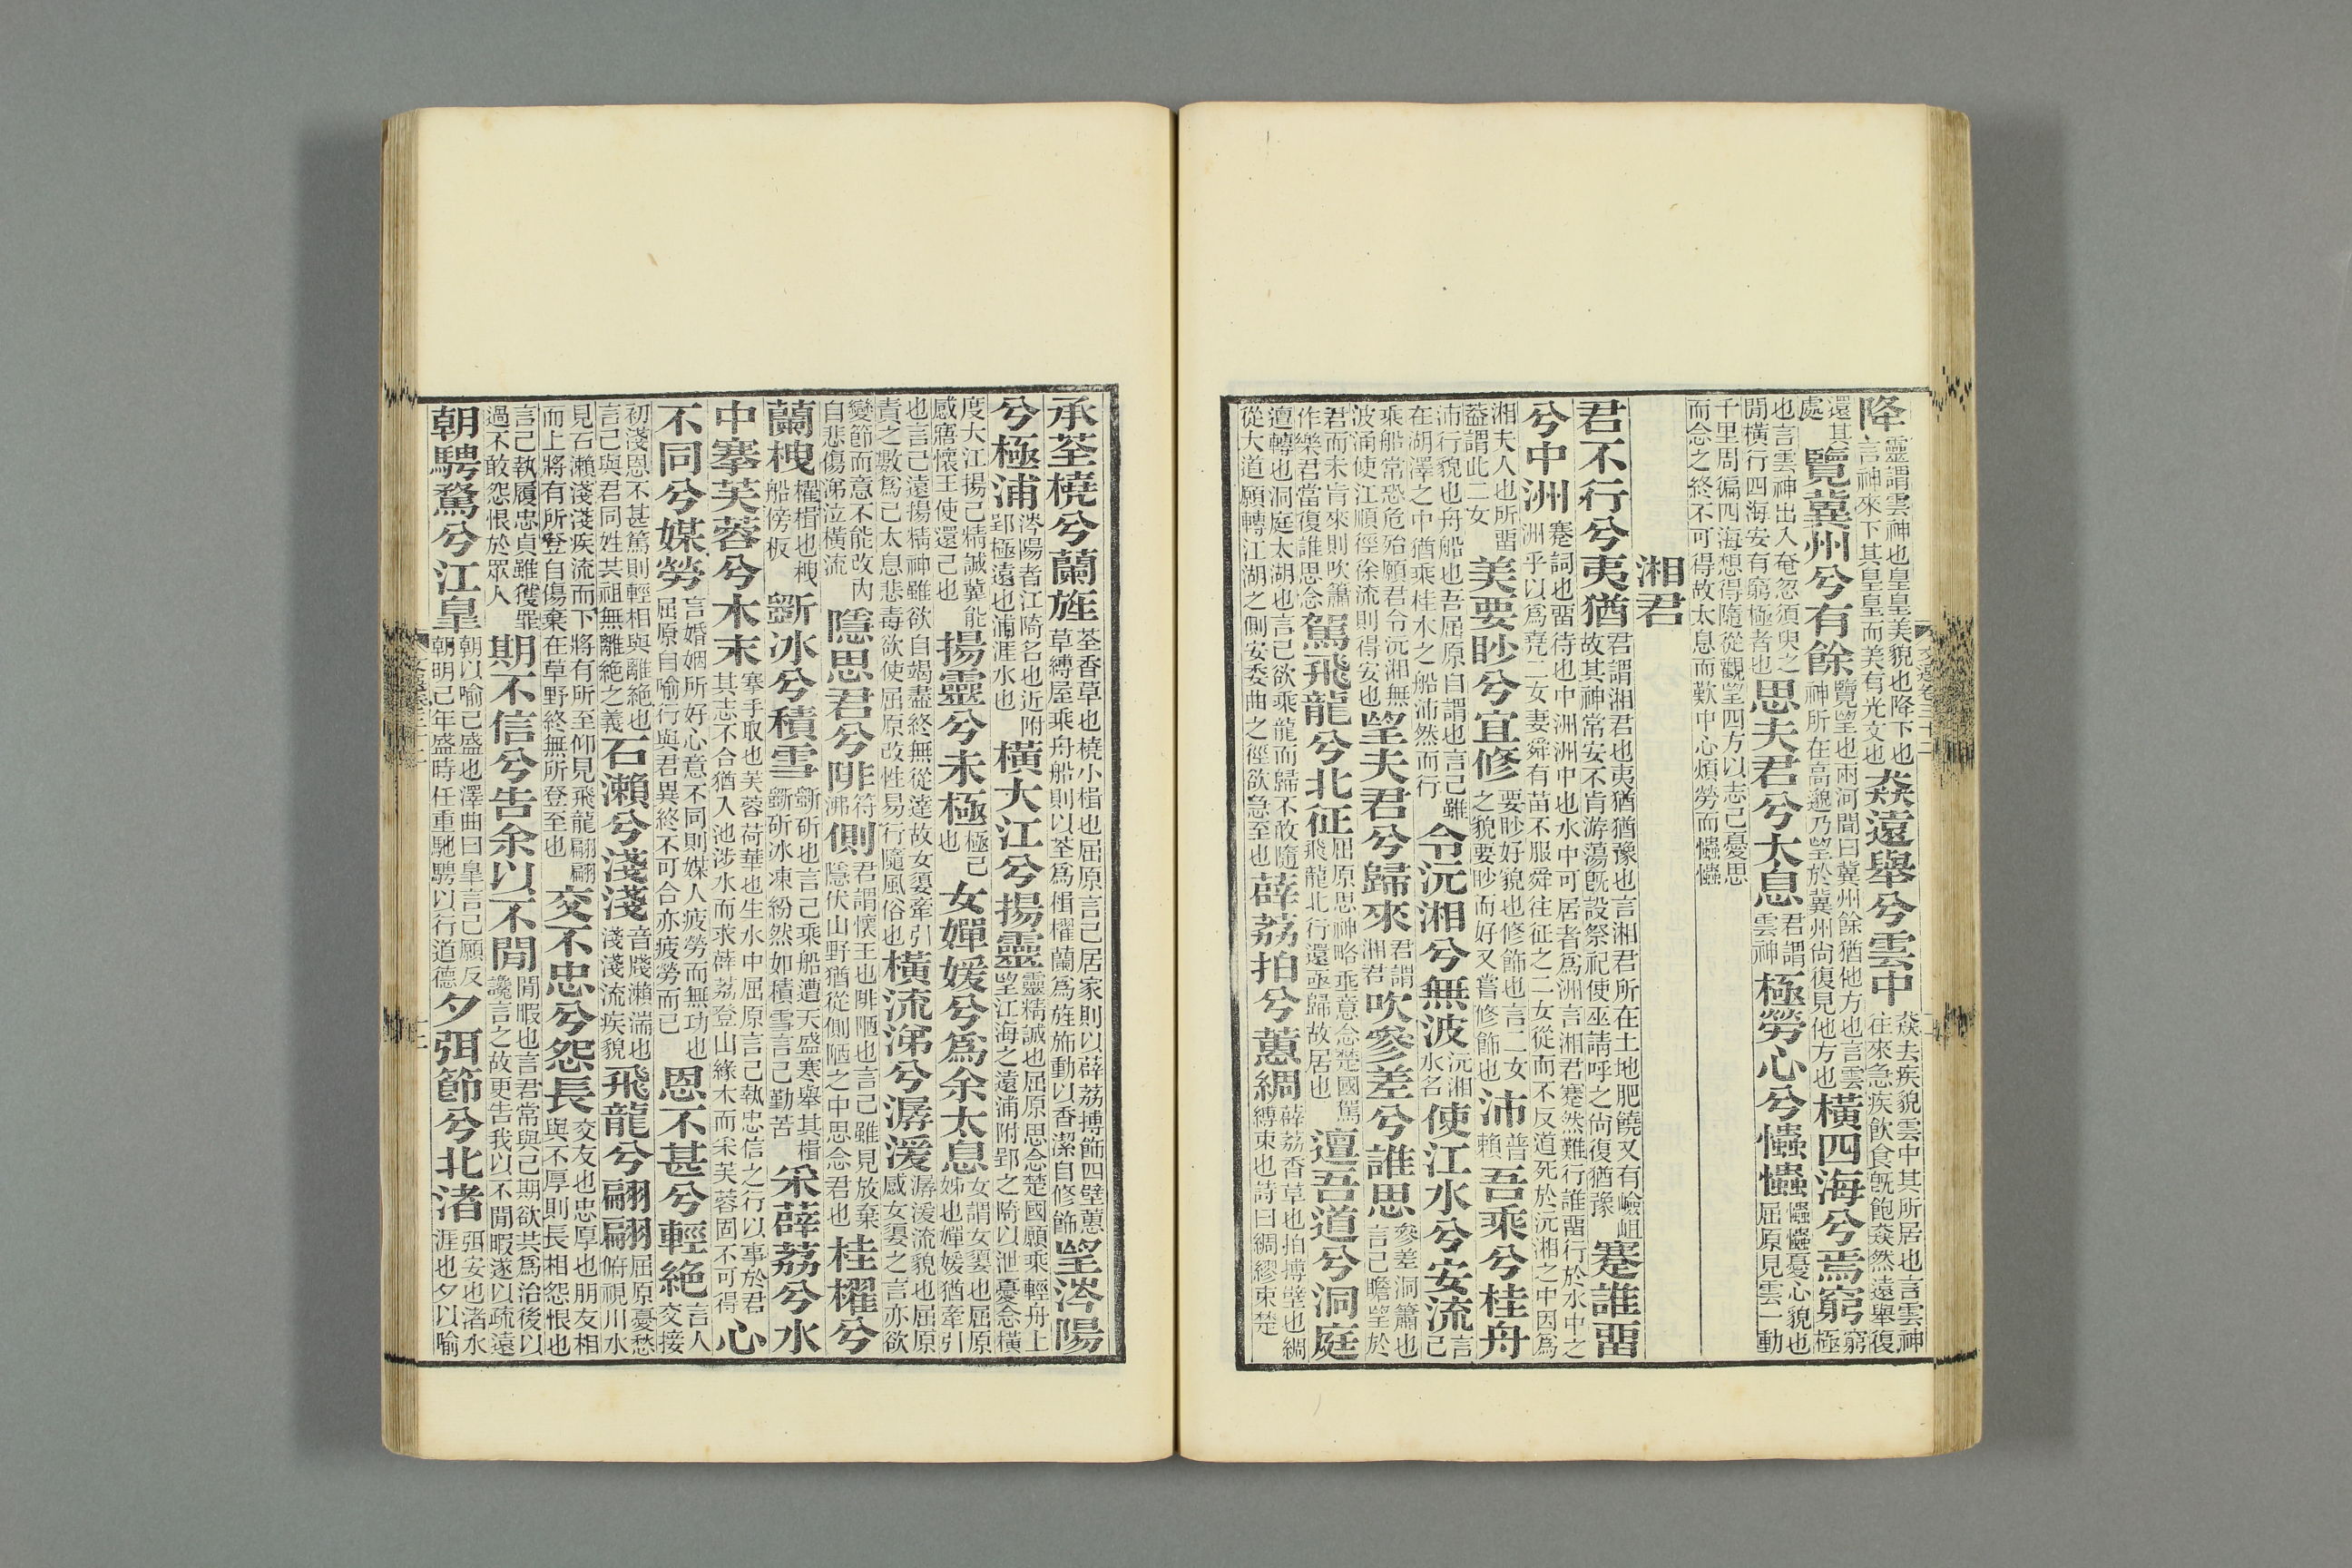 降靈謂雲神也皇皇美貌也降下也言神來下其皇皇而美有光文也猋遠舉兮雲中猋去疾貌雲中其所居也言雲神往來急疾飲食旣飽猋然遠舉復
還其處覽冀州兮有餘覽望也兩河閒曰冀州餘猶他方也言雲神所在高邈乃望於冀州尙復見他方也橫四海兮焉窮窮極
也言雲神出入奄忽須臾之閒橫行四海安有窮極者也思夫君兮太息君謂雲神極勞心兮𢥞𢥞𢥞𢥞憂心貌也屈原見雲一動
千里周徧四海想得隨從觀望四方以忘己憂思而念之終不可得故太息而歎中心煩勞而𢥞𢥞
湘君
君不行兮夷猶君謂湘君也夷猶猶豫也言湘君所在土地肥饒又有嶮岨故其神常安不肯游蕩旣設祭祀使巫請呼之尙復猶豫蹇誰畱
兮中洲蹇詞也畱待也中洲洲中也水中可居者爲洲言湘君蹇然難行誰畱行於水中之洲乎以爲堯二女妻舜有苗不服舜往征之二女從而不反道死於沅湘之中因爲
湘夫人也所畱葢謂此二女美要眇兮宜修要眇好貌也修飾也言二女之貌要眇而好又嘗修飾也沛普賴吾乘兮桂舟
沛行貌也舟船也吾屈原自謂也言己雖在湖澤之中猶乘桂木之船沛然而行令沅湘兮無波沅湘水名使江水兮安流言己
乘船常恐危殆願君令沅湘無波涌使江順徑徐流則得安也望夫君兮歸來君謂湘君吹參差兮誰思參差洞簫也言己瞻望於
君而未肯來則吹簫作樂君當復誰思念駕飛龍兮北征屈原思神略乖意念楚國駕飛龍北行還亟歸故居也邅吾道兮洞庭
邅轉也洞庭太湖也言己欲乘龍而歸不敢隨從大道願轉江湖之側安委曲之徑欲急至也薜荔拍兮蕙綢薜荔香草也拍搏壁也綢縛束也詩曰綢繆束楚
文選卷三十二
承荃橈兮蘭旌荃香草也橈小楫也屈原言己居家則以薜荔搏飾四壁蕙草縛屋乘舟船則以荃爲楫櫂蘭爲旌旂動以香潔自修飾望涔陽
兮極浦涔陽者江陭名也近附郢極遠也浦涯水也橫大江兮揚靈靈精誠也屈原思念楚國願乘輕舟上望江海之遠浦附郢之陭以泄憂念橫
度大江揚己精誠冀能感寤懷王使還己也揚靈兮未極極己也女嬋媛兮爲余太息女謂女嬃也屈原姊也嬋媛猶牽引
也言己遠揚精神雖欲自竭盡終無從達故女嬃牽引責之數爲己太息悲毒欲使屈原改性易行隨風俗也橫流涕兮潺湲潺湲流貌也屈原感女嬃之言亦欲
變節而意不能改內自悲傷涕泣橫流隱思君兮陫符沸側君謂懷王也陫陋也言己雖見放棄隱伏山野猶從側陋之中思念君也桂櫂兮
蘭枻櫂楫也枻船傍板斲冰兮積雪斲斫也言己乘船遭天盛寒舉其楫斲斫冰凍紛然如積雪言己勤苦采薜荔兮水
中搴芙蓉兮木末搴手取也芙蓉荷華也生水中屈原言己執忠信之行以事於君其志不合猶入池涉水而求薜荔登山緣木而采芙蓉固不可得心
不同兮媒勞言婚姻所好心意不同則媒人疲勞而無功也屈原自喻行與君異終不可合亦疲勞而已恩不甚兮輕絕言人交接
初淺恩不甚篤則輕相與離絕也言己與君同姓其祖無離絕之義石瀨兮淺淺音牋瀨湍也淺淺流疾貌飛龍兮翩翩屈原憂愁俯視川水
見石瀨淺淺疾流而下將有所至仰見飛龍翩翩而上將有所登自傷棄在草野終無所登至也交不忠兮怨長交友也忠厚也朋友相與不厚則長相怨恨也
言己執履忠貞雖獲罪過不敢怨恨於眾人期不信兮告余以不閒閒暇也言君常與己期欲共爲治後以讒言之故更告我以不閒暇遂以疏遠
朝騁騖兮江皐朝以喻己盛也澤曲曰皐言己願反朝明己年盛時任重馳騁以行道德夕弭節兮北渚弭安也渚水涯也夕以喻